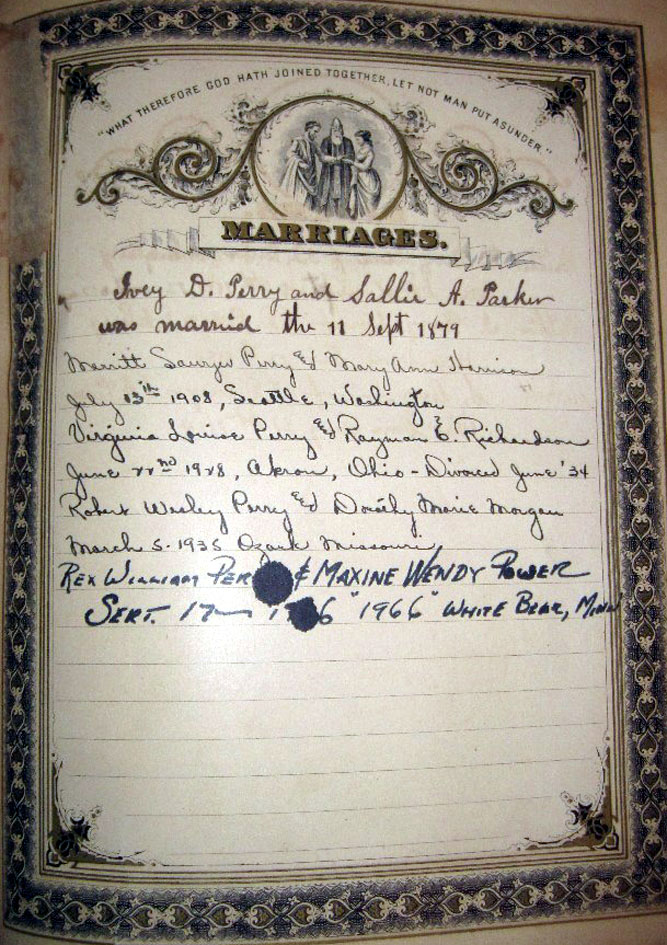 "WHAT THEREFORE GOD HATH JOINED TOGETHER, LET NOT MAN PUT ASUNDER."
MARRIAGES.
Ivey D. Perry and Sallie A. Parker
was married the 11 Sept 1879
Merritt Sawyer Perry & Mary Ann Harrison
July 13th 1908, Seattle, Washington
Virginia Louise Perry & Rayman E. Richardson
June 22nd 1928, Akron, Ohio - Divorced June '34
Robert Wesley Perry & Dorothy Marie Morgan
March 5. 1935 Ozark Missouri
REX WILLIAM PER & MAXINE WENDY POWER
SEPT. 17 1 6 "1966" WHITE BEAR, MINN